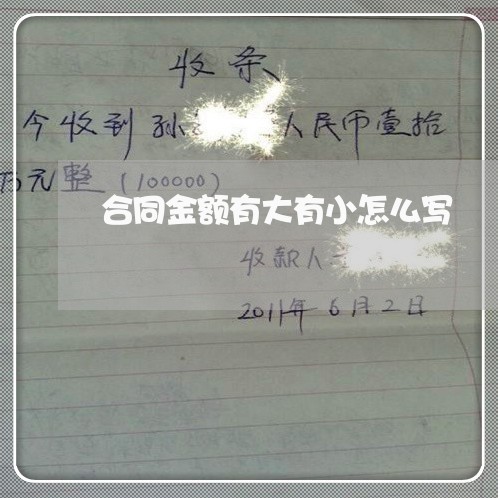 收条
今收到孙人民币壹拾
万元整（100000）
合同金额有大有小怎么写
收款人
2011年6月2日